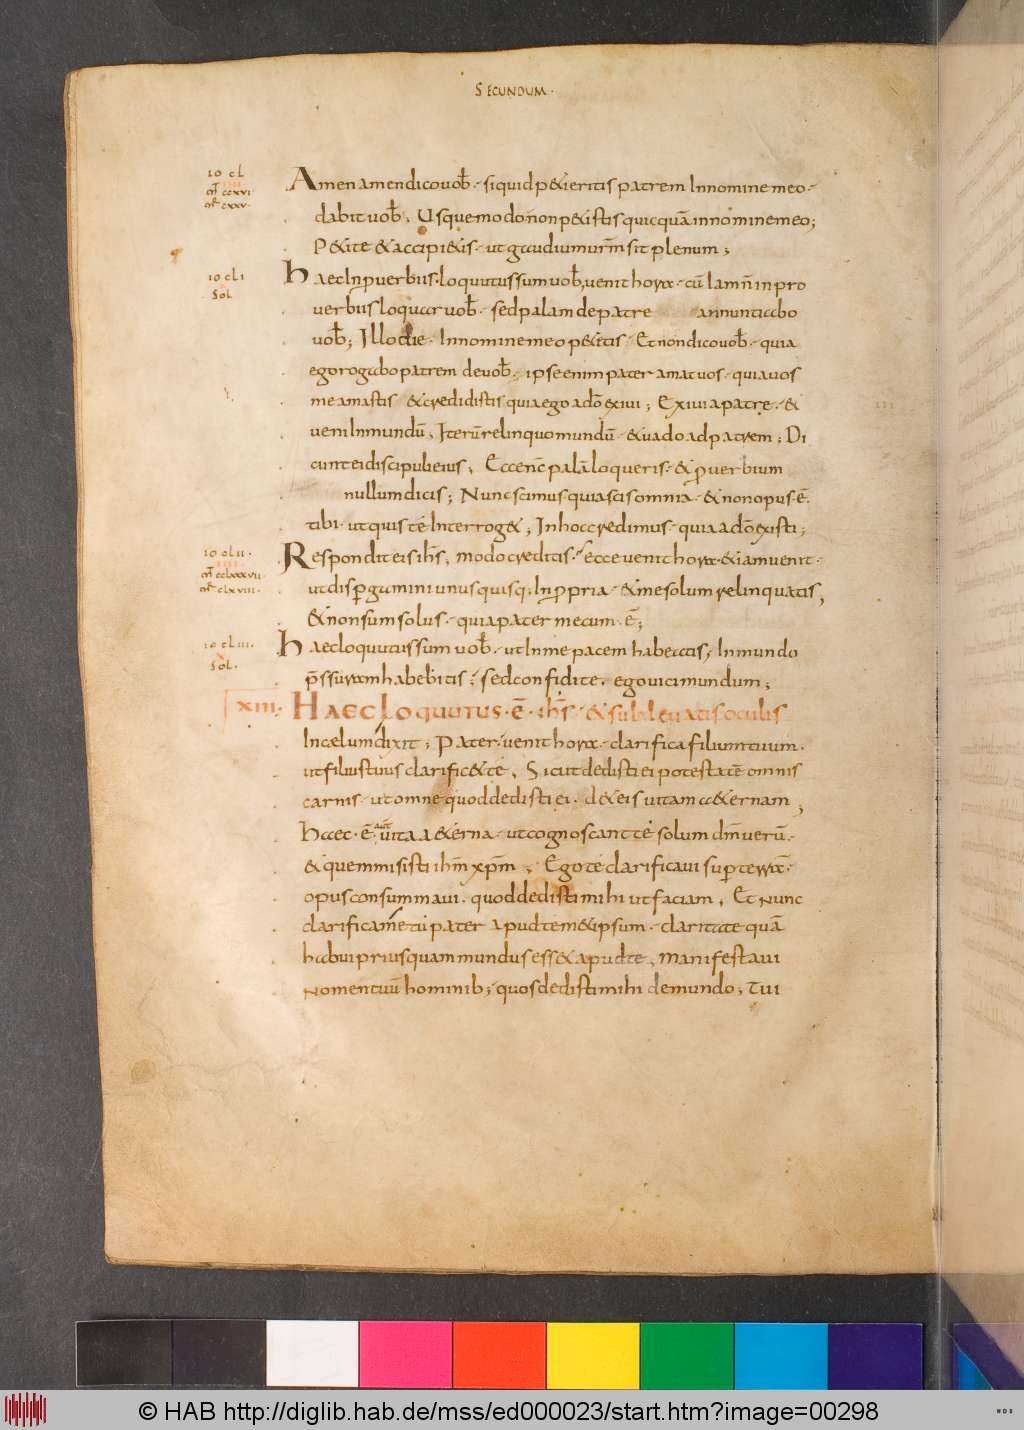 SECUNDUM·
IO CL
IIII
mr̄ ccxvi·
mr̄ cxxv·
Amen amen dico vob̄· siquid p&ieritis patrem In nomine meo·
dabit vob̄, Usque modo non p&istis quicquā in nomine meo;
P&ite & accipi&is· ut gaudium ur̄m sit plenum;
IO CLI
Sol
Haec In puerbiis· loquutus sum vob̄, venit hora· cū Iam n̄ in pro
verbiis loquar vob̄· sed palam de patre annuntiabo
vob̄; Illo die· In nomine meo p&itis· Et non dico vob̄· quia
ego rogabo patrem de vob̄, ipse enim pater amat vos· quia vos
me amastis & credidistis quia ego a dō exivi; Exivi a patre· &
veni In mundū, Iterū relinquo mundū· & vado ad patrem; Di
cunt ei discipuli eius, Ecce nc̄ palā loqueris· & p̱verbium
nullum dicis; Nunc scimus quia scis omnia· & non opus· ē·
tibi· ut quis te Interrog&; In hoc credimus· quia a dō existi;
IO CLII·
IIII
mr̄ cclxxxvii·
mr̄ clxviii·
Respondit eis ih̄s, modo creditis· ecce venit hora· & iam venit·
ut dispgamini unusquisq; In ppria· & me solum relinquatis,
& non sum solus· quia pater mecum· ē;
IO CLIII·
Sol·
Haec loquutus sum vob̄· ut In me pacem habeatis, In mundo
p̄ssuram habebitis; sed confidite, ego vici mundum;
XIII· HAEC LOQUUTUS· Ē· ih̄s· & sublevatis oculis
In caelum dixit; Pater· venit hora· clarifica filium tuum·
ut filius tuus clarific& te, Sicut dedisti ei potestatē omnis
carnis· ut omne quod dedisti ei· d& eis vitam a&ernam;
Haec· ē· aut̄ vita a&erna· ut cognoscant te solum dm̄ verū·
& quem misisti ih̄m xp̄m, Ego te clarificavi sup terrā·
opus consummavi· quod dedisti mihi ut faciam, Et nunc
clarifica me tu pater apud tem&ipsum· claritate quā
habui priusquam mundus ess& apud te, manifestavi
nomen tuū hominib; quos dedisti mihi de mundo, Tui
© HAB http://diglib.hab.de/mss/ed000023/start.htm?image=00298